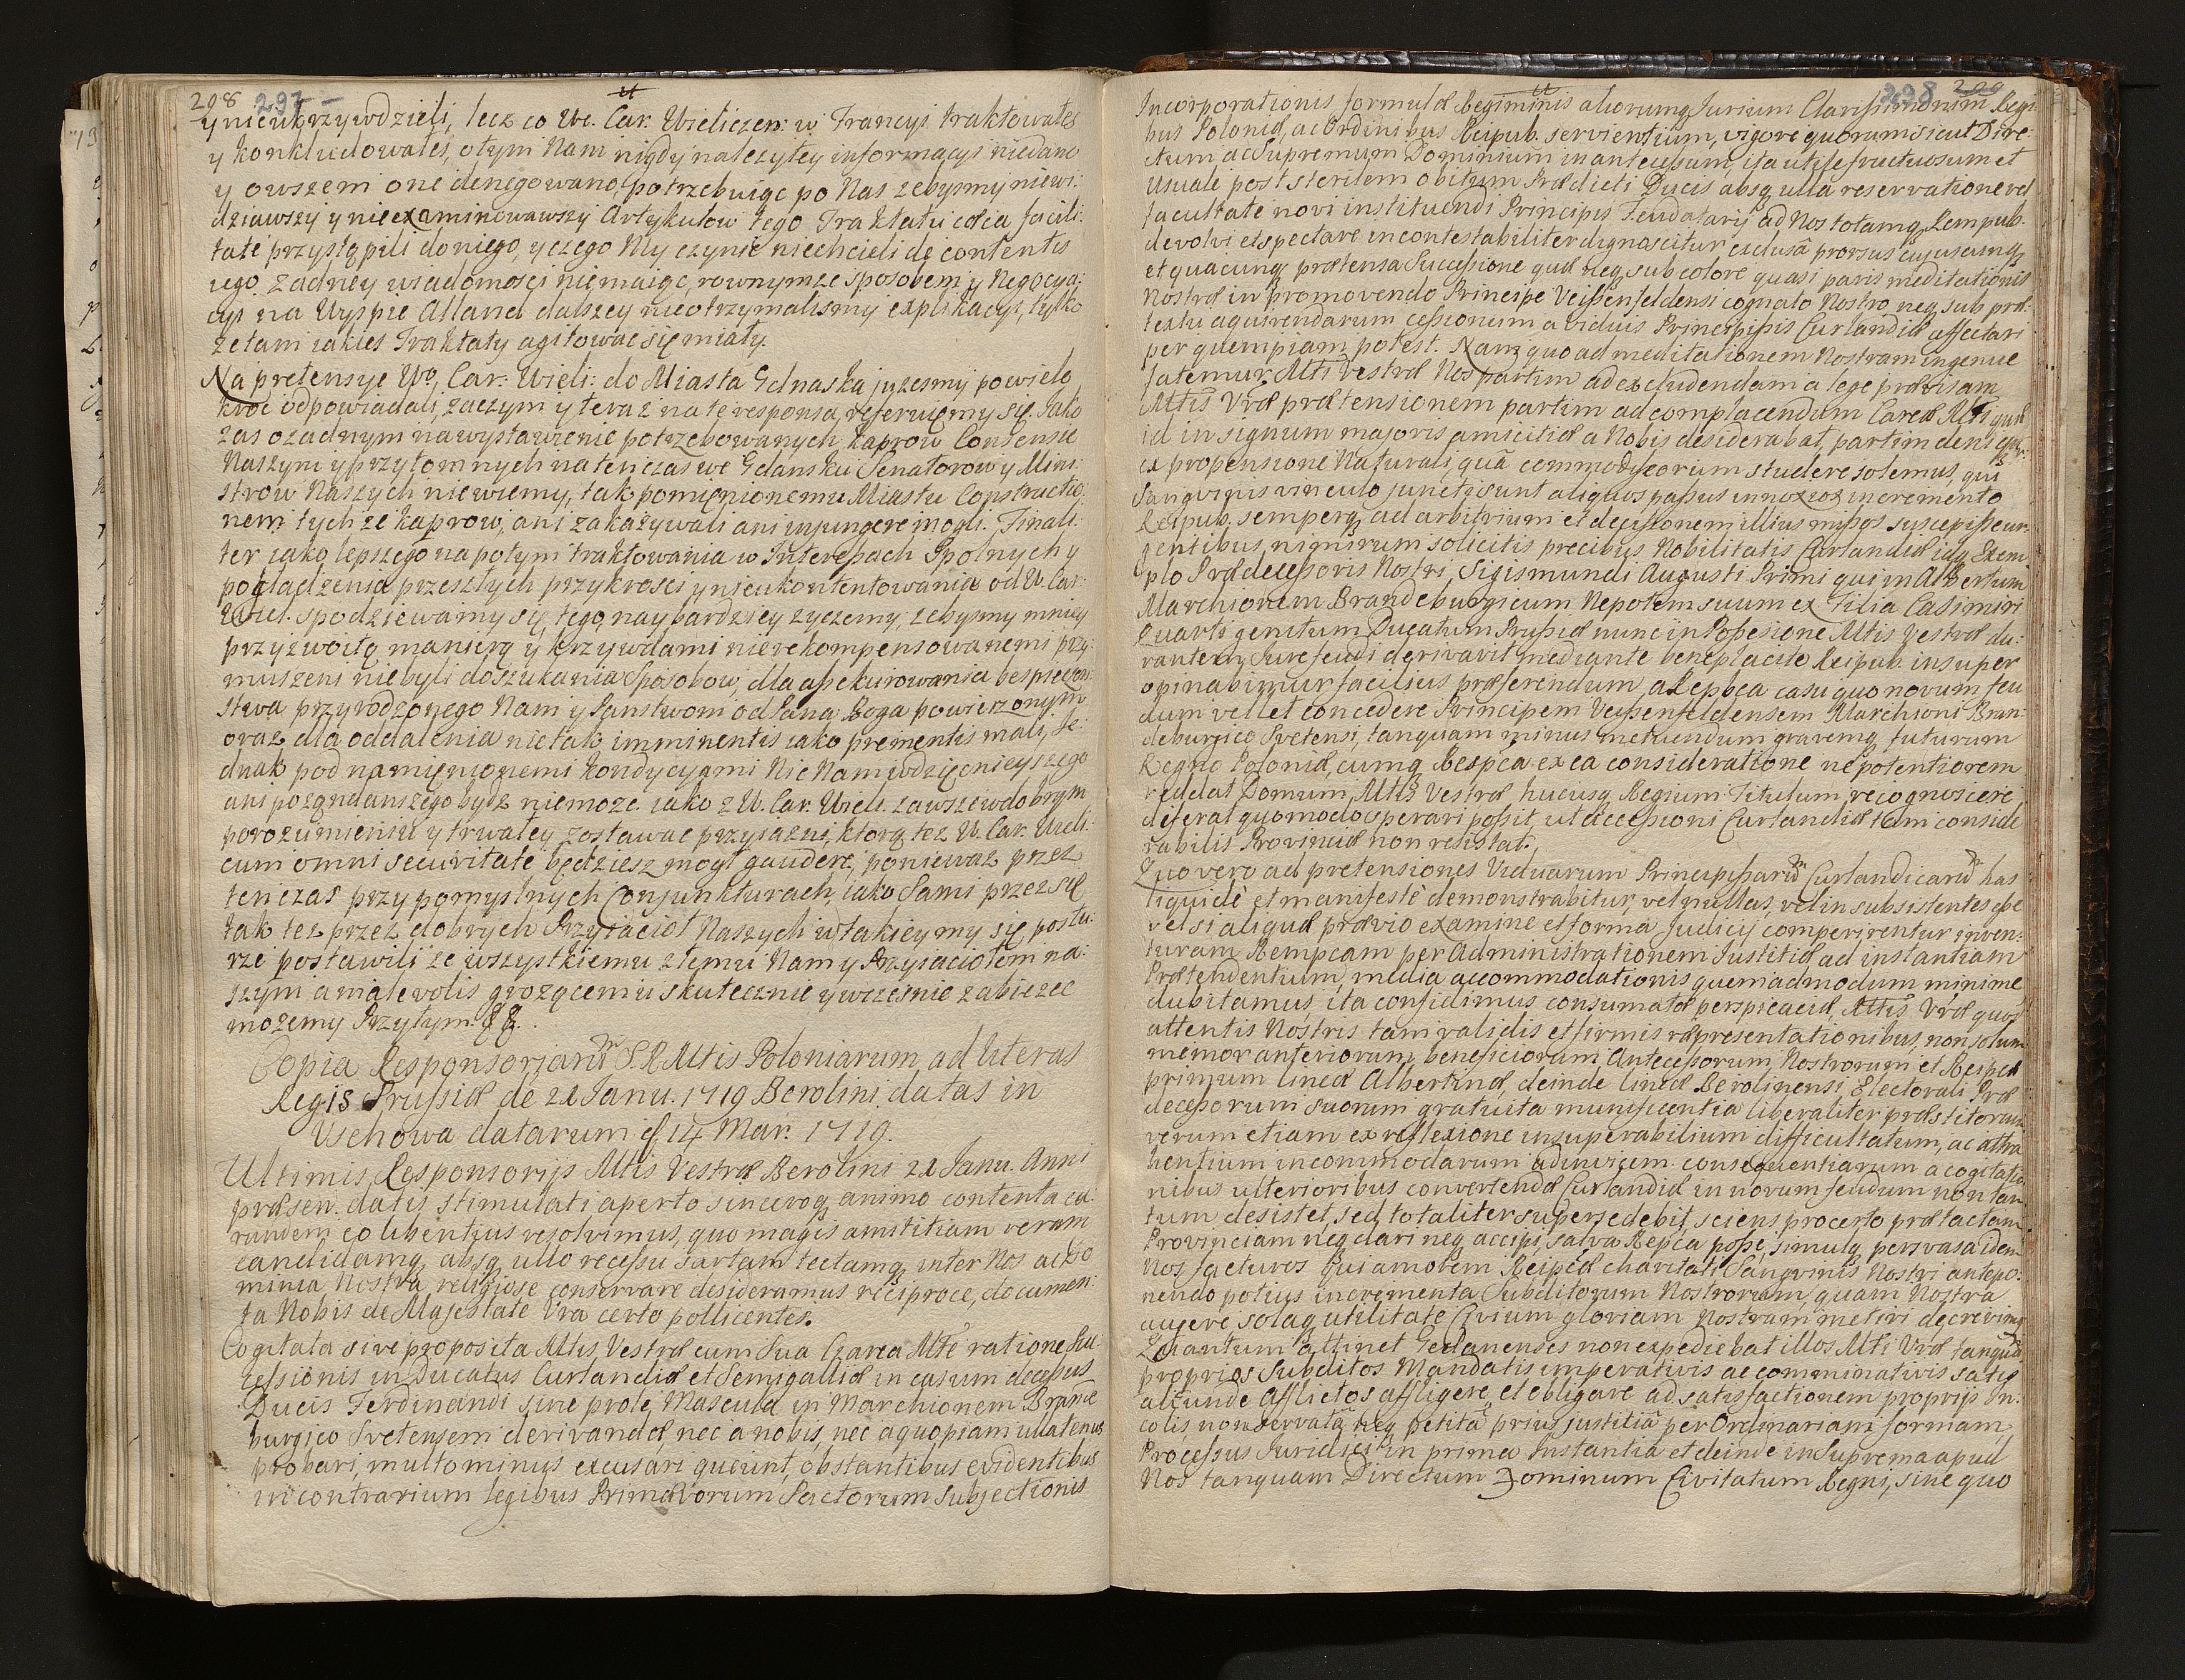 298 297
y nieukrzywdzieli, lecz co We. Car. Wieliczen: w Francyi traktowałeś
y konkludowałeś, o tym Nam nigdy należytey informacyi niedano
y owszem one denegowano, potrzebuiąc po Nas żebysmy niewi:
dziawszy y nieexaminowawszy Artykułow tego Traktatu cæca facili:
tate przystąpili do niego, y czego My czynić niechcieli de contentis
iego żadney wiadomosci niemaiąc, rownymże sposobem y Negocya:
cyi na Wyspie Alland dalszey nieotrzymalismy explikacyi, tylko
że tam iakies Traktaty agitować się miały.
Na pretensye We. Car: Wieli: do Miasta Gdnaska jużesmy powielo
kroć odpowiadali, zaczym y teraz na te responsa referuiemy się. Iako
zas o żadnym na wystawienie potrzebowanych kaprow Consensie
Naszym y przytomnych natenczas we Gdansku Senatorow y Mini:
strow Naszych niewiemy, tak pomienionemu Miastu Constructio:
nem tychże kaprow, ani zakazywali ani injungere mogli. Finali:
ter iako lepszego napotym traktowania w Interessach Spolnych y
pogładzenia przeszłych przykrosci y nieukontentowania od W. Car:
Wiel. spodziewamy się, tego naybardziey życzemy, żebysmy mniey
przyzwoitą manierą y krzywdami nierekompensowanemi przy:
muszeni niebyli do szukania sposobow, dla assekurowania bespieczen:
stwa przyrodzonego Nam y Panstwom od Pana Boga powierzonym
oraz dla oddalenia nietak imminentis iako prementis mali, Ie:
dnak pod namienionemi kondycyami Nic Nam wdzięcnieyszego
ani pożądanszego bydz niemoże iako z W. Car. Wieli. zawsze w dobrym
porozumieniu y trwałey zostawać przyiazni, ktorą też W. Car. Wieli:
cum omni securitate będziesz mogł gaudere, ponieważ przez
ten czas przy pomyslnych Conjunkturach, iako Sami przez się
tak też przez dobrych Przyiacioł Naszych w takiey my się postu:
rze postawili że wszystkiemu złemu Nam y Przyiaciołom na:
szym a malevolis grożącemu skutecznie y wczesnie zabieżec
możemy Przytym &&.
Copia Responsoriarũ S.R.Mtis Poloniarum, ad literas
Regis Prussiæ de 21 Janu. 1719 Berolini datas in
Vschowa datarum d. 14 Mar. 1719.
Ultimis Responsorijs Mtis Vestræ Berolini 21 Janu. Anni
præsen. datis stimulati aperto sinceroq. animo contenta ea:
rundem eo libentius resolvimus, quo magis amicitiam veram
candidamq, absq ullo recessu sartam tectamq inter Nos ac Do
minia Nostra religiose conservare desideramus reciproce, documen:
ta Nobis de Majestate Vra certo pollicentes.
Cogitata sive proposita Mtis Vestræ cum Sua Czarea Mte ratione Su:
cessionis in Ducatus Curlandiæ et Semigalliæ in casum decessus
Ducis Ferdinandi sine prole Mascula in Marchionem Brande
burgico Svetensem derivandæ, nec a nobis, nec a quopiam ullatenus
probari, multo minus excusari queunt, obstantibus evidentibus
in contrarium legibus Primævorum Pactorum Subjectionis
298 299
Incorporationis formulæ Regiminis aliorumq Jurium Clarissimorum Regi:
bus Poloniæ, ac Ordinibus Reipub. servientium, vigore quorum sicut Dire:
ctum ac Supremum Dominium in antecessum, ita utile fructuosum et
Usuale post sterilem obitum Prædicti Ducis absq ulla reservatione vel
facultate novi instituendi Principis Feudatarij ad Nos totamq Rempub.
devolvi et spectare incontestabiliter dignoscitur exclusâ prorsus cujuscunq
et quacunq prætensa Successione quæ neq sub colore quasi paris meditationis
Nostræ in promovendo Principe Veissenfeldensi cognato Nostro neq sub præ:
textu aquirendarum cessionum a viduis Principissis Curlandiæ affectari
per quempiam potest. Namq quo ad meditationem Nostram ingenue
fatemur Mti Vestræ Nos partim ad excludendam a lege prævisam
Mtis Vræ prætensionem partim ad complacendum Careæ Mti quæ
id in signum majoris amicitiæ a Nobis desiderabat, partim deniq
ex propensione Naturali, quâ commodis eorum studere solemus, qui
Sangvinis vinculo juncti sunt aliquos passus innoxios incremento
Reipub. semperq ad arbitrium et decisionem illius missos suscepisse ur:
gentibus nimirum solicitis precibus Nobilitatis Curlandiæ idq Exem:
plo Prædecessoris Nostri Sigismundi Augusti Primi qui in Albertum
Marchionem Brandeburgicum Nepotem suum ex Filia Casimiri
Quarti genitum Ducatum Prussiæ nunc in Possesione Mtis Vestræ du:
rantem Jure feudi derivavit mediante beneplacito Reipub. insuper
opinabimur facilius præferendum a Repbca casu quo novum feu
dum vellet concedere Principem Veissenfeldensem Marchioni Bran:
deburgico Svetensi, tanquam minus metuendum gravemq futurum
Regno Poloniæ, cumq Respca ex ea consideratione ne potentiorem
reddat Domum Mtis Vestræ hucusq Regium Titulum recognoscere
deferat quomodo sperari possit, ut accessioni Curlandiæ tam conside
rabilis Provinciæ non resistat.
Quo vero ad pretensiones Viduarum Principissarũ Curlandicarũ has
liquidè et manifestè demonstrabitur, vel nullas, vel insubsistentes esse
vel si aliquæ prævio examine et forma Judicij comperirentur inven:
turam Rempcam per Administrationem Iustitiæ ad instantiam
Prætendentium, media accommodationis quemadmodum minime
dubitamus, ita confidimus consumatæ perspicaciæ, Mtis Vræ quod
attentis Nostris tam validis et firmis repræsentationibus, non solum
memor anteriorum beneficiorum Antecessorum Nostrorum et Reipcæ
primum lineæ Albertinæ, deinde lineæ Berolinensi Electorali Præ
decessorum suorum gratuita munificentia liberaliter præstitorum
verum etiam ex reflexione insuperabilium difficultatum, ac attra
hentium incommodarum adinvicem consequentiarum a cogitatio
nibus ulterioribus convertendæ Curlandiæ in novum feudum non tan
tum desistet, sed totaliter supersedebit, sciens procerto prætactam
Provinciam neq dari neq accipi, salva Repca posse, simulq persvasa idem
Nos facturos Qui amorem Reipcæ charitati Sangvinis Nostri antepo:
nendo potius incrementa Subditorum Nostrorum, quam Nostra
augere solaq utilitate Civium gloriam Nostram metiri decrevimq
Quantum attinet Gedanenses non expediebat illos Mti Vræ tanquã
proprios Subditos Mandatis imperativis ac comminativis satis
aliunde Afflictos affligere, et obligare ad satisfactionem proprijs In:
colis, non servatâ neq petitâ prius justitiâ per Ordinariam formam
Processus Iuridici in prima Instantia et deinde in Suprema apud
Nos tanquam Directum Dominum Civitatum Regni, sine quo